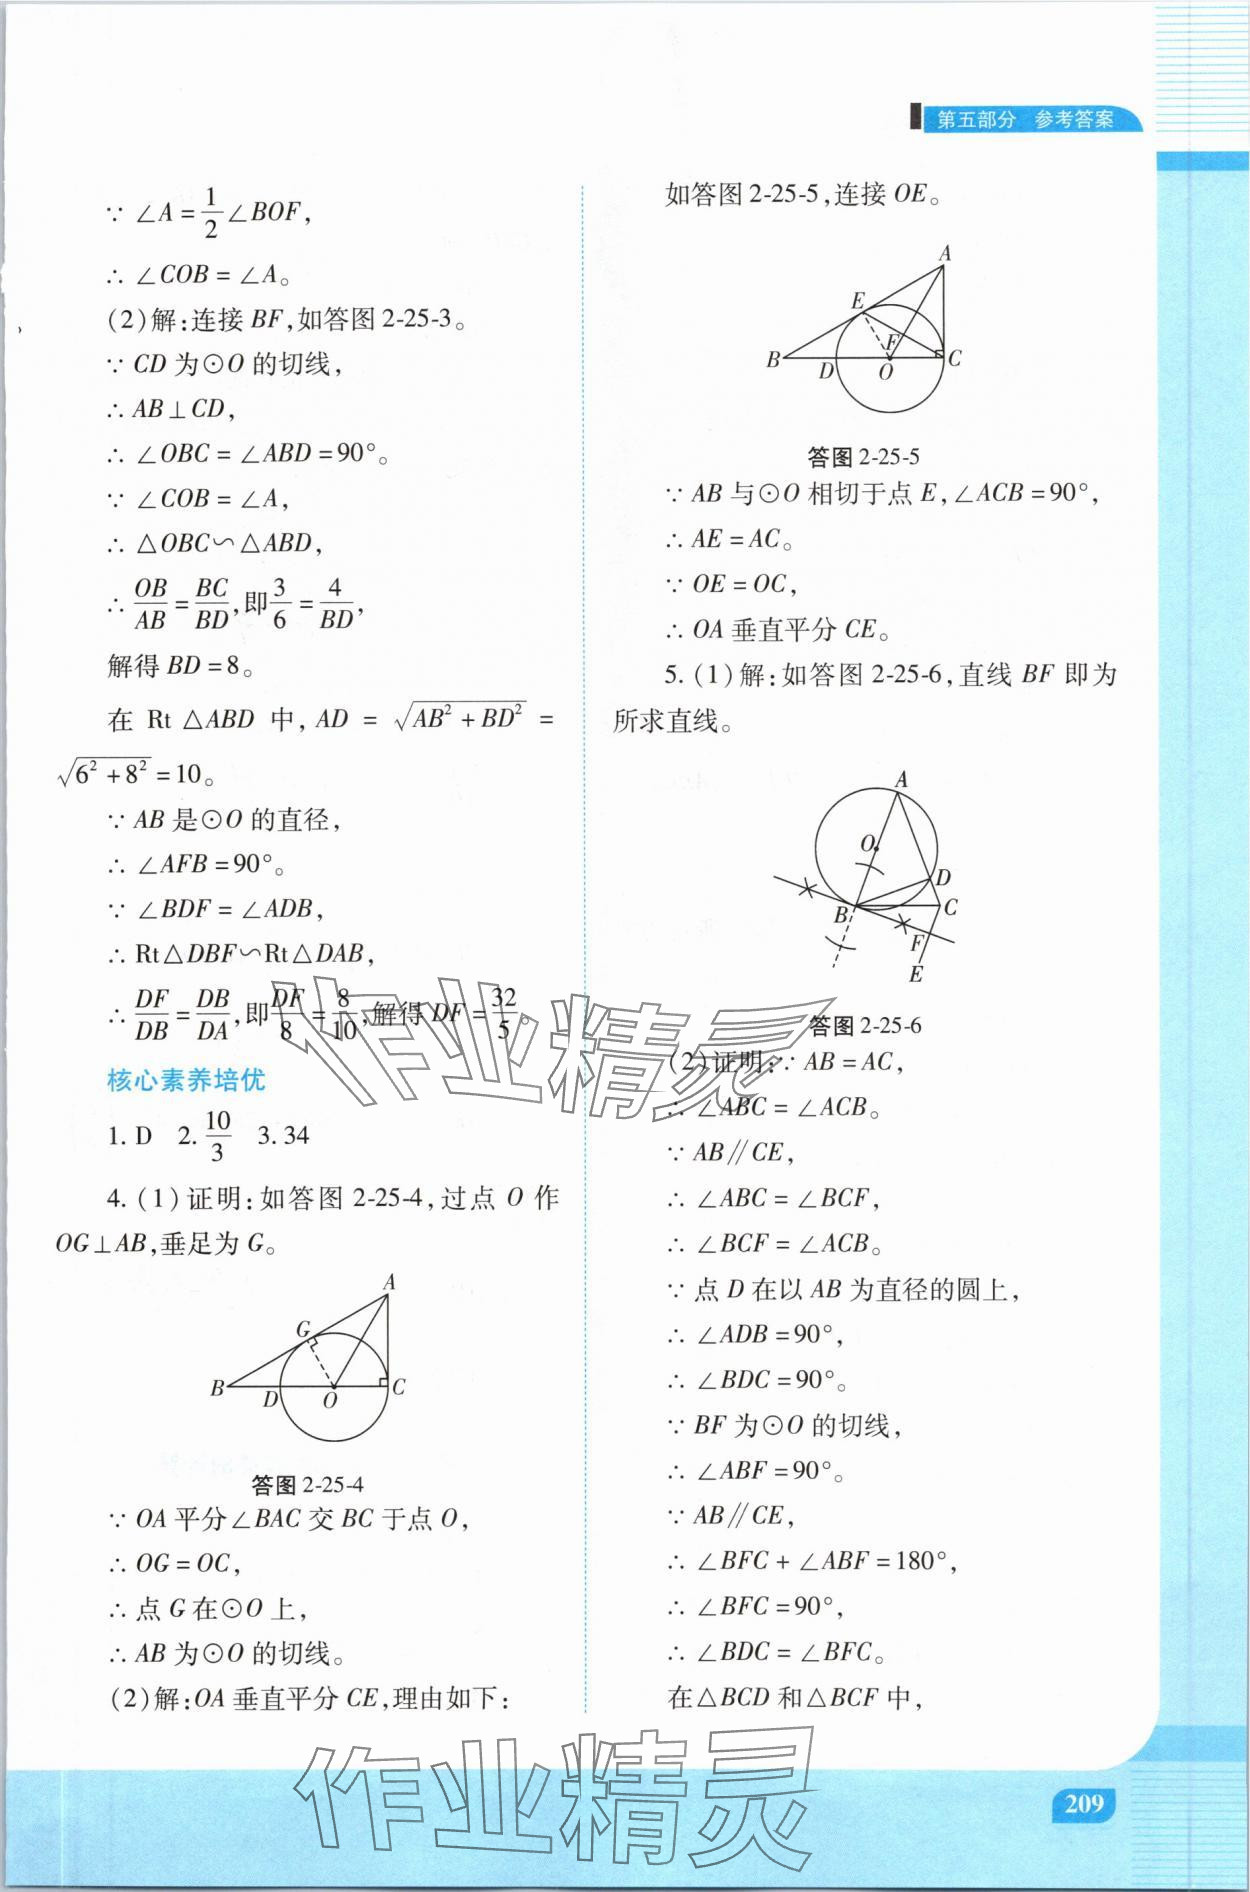 第五部分 参考答案
∵ ∠A=1/2∠BOF,
∴ ∠COB=∠A。
(2)解:连接BF,如答图2-25-3。
∵ CD为⊙O的切线,
∴ AB⊥CD,
∴ ∠OBC=∠ABD=90°。
∵ ∠COB=∠A,
∴ △OBC∽△ABD,
∴ OB/AB=BC/BD,即3/6=4/BD,
解得BD=8。
在 Rt△ABD 中, AD = √(AB²+BD²) =
√(6²+8²)=10。
∵ AB是⊙O的直径,
∴ ∠AFB=90°。
∵ ∠BDF=∠ADB,
∴ Rt△DBF∽Rt△DAB,
∴ DF/DB=DB/DA,即DF/8=8/10,解得DF=32/5。
核心素养培优
1. D 2. 10/3 3. 34
4. (1)证明:如答图2-25-4,过点O作
OG⊥AB,垂足为G。
A
G
B
D
O
C
答图2-25-4
∵ OA平分∠BAC交BC于点O,
∴ OG=OC,
∴ 点G在⊙O上,
∴ AB为⊙O的切线。
(2)解:OA垂直平分CE,理由如下:
如答图2-25-5,连接OE。
A
E
F
B
D
O
C
答图2-25-5
∵ AB与⊙O相切于点E,∠ACB=90°,
∴ AE=AC。
∵ OE=OC,
∴ OA垂直平分CE。
5. (1)解:如答图2-25-6,直线BF即为
所求直线。
A
O
D
B
C
F
E
答图2-25-6
(2)证明:∵ AB=AC,
∴ ∠ABC=∠ACB。
∵ AB∥CE,
∴ ∠ABC=∠BCF,
∴ ∠BCF=∠ACB。
∵ 点D在以AB为直径的圆上,
∴ ∠ADB=90°,
∴ ∠BDC=90°。
∵ BF为⊙O的切线,
∴ ∠ABF=90°。
∵ AB∥CE,
∴ ∠BFC+∠ABF=180°,
∴ ∠BFC=90°,
∴ ∠BDC=∠BFC。
在△BCD和△BCF中,
作业精灵
作业精灵
209